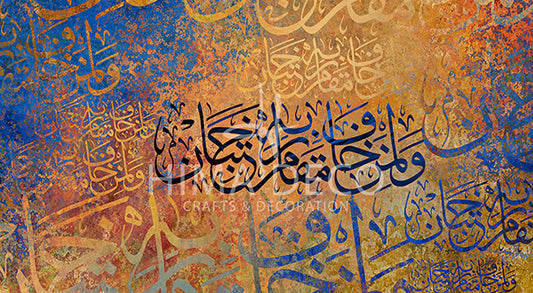 ولمن خاف مقام ربه جنتان
HIMA DECO
CRAFTS & DECORATION